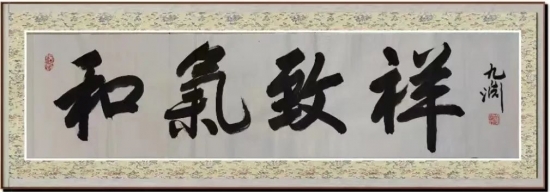 和氣致祥
九淵